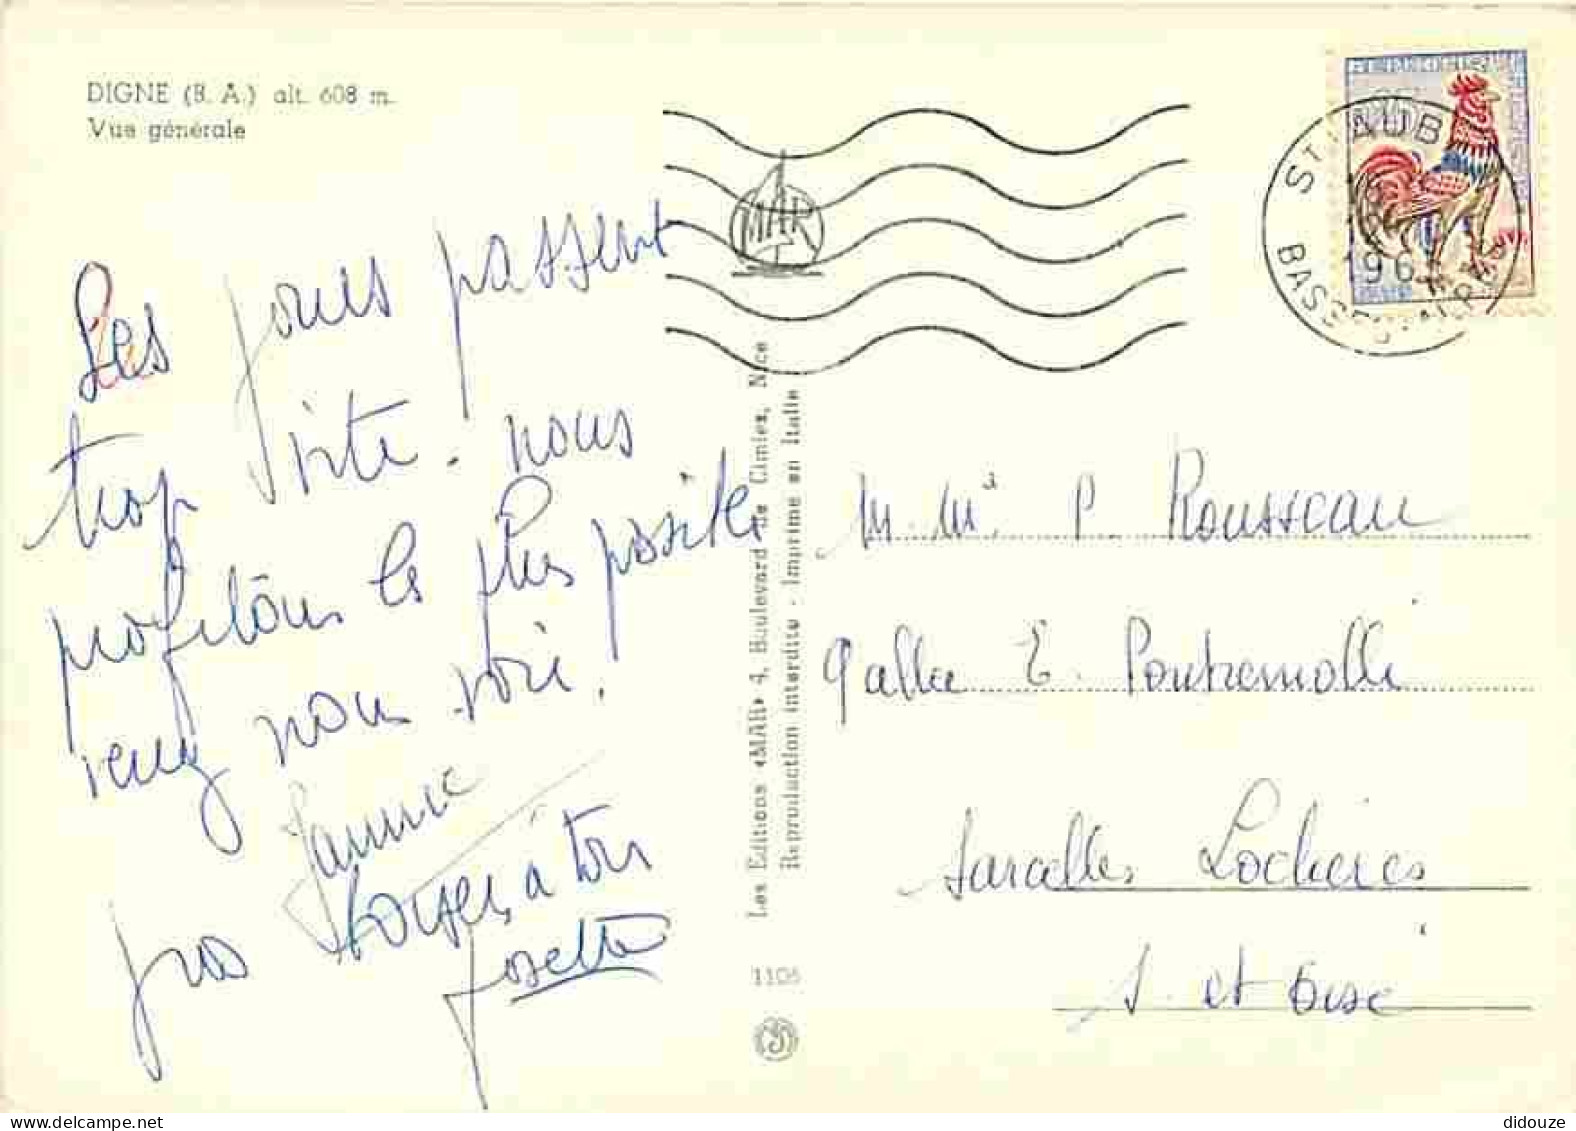 DIGNE (B. A.) alt. 608 m.
Vue générale
Les jours passent
trop vite. nous
profitons le plus possible
venez nous voir.
gros baisers à tous
Josette
MAR
Les Editions «MAR» 4, Boulevard de Cimiez, Nice
Reproduction interdite - Imprimé en Italie
1105
ST AUB
BASSES-ALPES
196
M. Me P. Rousseau
Sarcelles Lochères
S. et Oise
delcampe.net
didouze